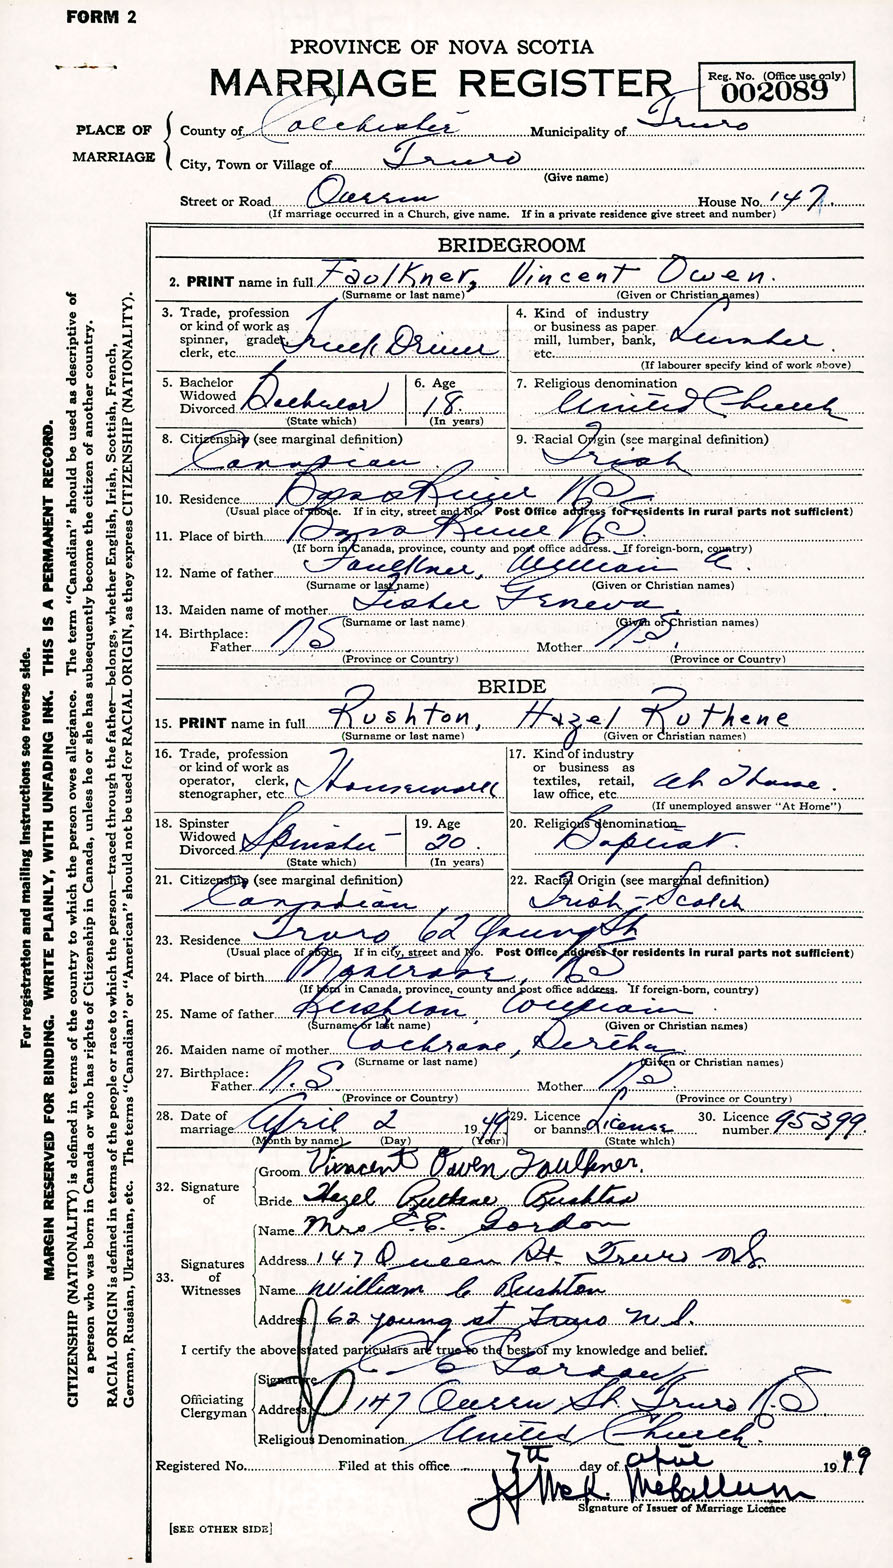 FORM 2
PROVINCE OF NOVA SCOTIA
MARRIAGE REGISTER
Reg. No. (Office use only)
002089
PLACE OF MARRIAGE
County of Colchester Municipality of Truro
City, Town or Village of Truro
(Give name)
Street or Road Queen House No. 147
(If marriage occurred in a Church, give name. If in a private residence give street and number)
BRIDEGROOM
2. PRINT name in full Faulkner, Vincent Owen.
(Surname or last name) (Given or Christian names)
3. Trade, profession or kind of work as spinner, grader, clerk, etc. Truck Driver
4. Kind of industry or business as paper mill, lumber, bank, etc. Lumber
(If labourer specify kind of work above)
5. Bachelor Widowed Divorced Bachelor
(State which)
6. Age 18
(In years)
7. Religious denomination United Church
8. Citizenship (see marginal definition) Canadian
9. Racial Origin (see marginal definition) Irish
10. Residence Bass River N S
(Usual place of abode. If in city, street and No. Post Office address for residents in rural parts not sufficient)
11. Place of birth Bass River N S
(If born in Canada, province, county and post office address. If foreign-born, country)
12. Name of father Faulkner, William A.
(Surname or last name) (Given or Christian names)
13. Maiden name of mother Fisher Geneva
(Surname or last name) (Given or Christian names)
14. Birthplace: Father N S Mother N S.
(Province or Country) (Province or Country)
BRIDE
15. PRINT name in full Rushton, Hazel Ruthene
(Surname or last name) (Given or Christian names)
16. Trade, profession or kind of work as operator, clerk, stenographer, etc. Housework
17. Kind of industry or business as textiles, retail, law office, etc. At Home.
(If unemployed answer "At Home")
18. Spinster Widowed Divorced Spinster
(State which)
19. Age 20
(In years)
20. Religious denomination Baptist.
21. Citizenship (see marginal definition) Canadian
22. Racial Origin (see marginal definition) Irish-Scotch
23. Residence Truro 62 Young St
(Usual place of abode. If in city, street and No. Post Office address for residents in rural parts not sufficient)
24. Place of birth Montrose, N S
(If born in Canada, province, county and post office address. If foreign-born, country)
25. Name of father Rushton, William
(Surname or last name) (Given or Christian names)
26. Maiden name of mother Cochrane, Bertha
(Surname or last name) (Given or Christian names)
27. Birthplace: Father N. S Mother N S
(Province or Country) (Province or Country)
28. Date of marriage April 2 1949
(Month by name) (Day) (Year)
29. Licence or banns License
(State which)
30. Licence number 95399
32. Signature of
Groom Vinncent Owen Faulkner.
Bride Hazel Ruthene Rushton
33. Signatures of Witnesses
Name Mrs C.E. Gordon
Address 147 Queen St. Truro N.S.
Name William C Rushton
Address 62 young st Truro N.S.
I certify the above stated particulars are true to the best of my knowledge and belief.
Officiating Clergyman
Signature C E Gordon
Address 147 Queen St. Truro N.S
Religious Denomination United Church.
Registered No. Filed at this office 7th day of April 1949
J McK. McCallum
Signature of Issuer of Marriage Licence
[SEE OTHER SIDE]
For registration and mailing instructions see reverse side.
MARGIN RESERVED FOR BINDING. WRITE PLAINLY, WITH UNFADING INK. THIS IS A PERMANENT RECORD.
CITIZENSHIP (NATIONALITY) is defined in terms of the country to which the person owes allegiance. The term "Canadian" should be used as descriptive of
a person who was born in Canada or who has rights of Citizenship in Canada, unless he or she has subsequently become the citizen of another country.
RACIAL ORIGIN is defined in terms of the people or race to which the person—traced through the father—belongs, whether English, Irish, Scottish, French,
German, Russian, Ukrainian, etc. The terms "Canadian" or "American" should not be used for RACIAL ORIGIN, as they express CITIZENSHIP (NATIONALITY).